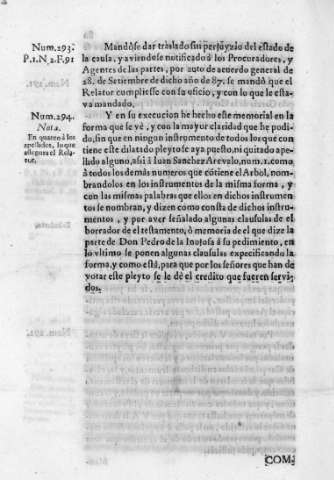 Num.293.
P.1.N.2.F.91
Mandòse dar traslado sin perjuyzio del estado de
la causa, y aviendose notificado à los Procuradores, y
Agentes de las partes, por auto de acuerdo general de
28. de Setiembre de dicho año de 87. se mandò que el
Relator cumpliesse con su oficio, y con lo que le esta-
va mandado.
Num.294.
Nota.
En quanto à los
apellidos, lo que
assegura el Rela-
tor.
Y en su execucion he hecho este memorial en la
forma que se vè, y con la mayor claridad que he podi-
do, sin que en ningun instrumento de todos los que con
tiene este dilatado pleyto se aya puesto, ni quitado ape-
llido alguno, asi à Iuan Sanchez Arevalo, num. 1. como
à todos los demàs numeros que cõtiene el Arbol, nom-
brandolos en los instrumentos de la misma forma, y
con las mismas palabras que ellos en dichos instrumen-
tos se nombran, y dizen como consta de dichos instru-
mentos, y por aver señalado algunas clausulas de el
borrador de el testamento, ò memoria de el que dize la
parte de Don Pedro de la Inojosa à su pedimiento, en
lo vltimo se ponen algunas clausulas expecificando la
forma, y como està, para que por los señores que han de
votar este pleyto se le dè el credito que fueren servi-
dos.
COM-